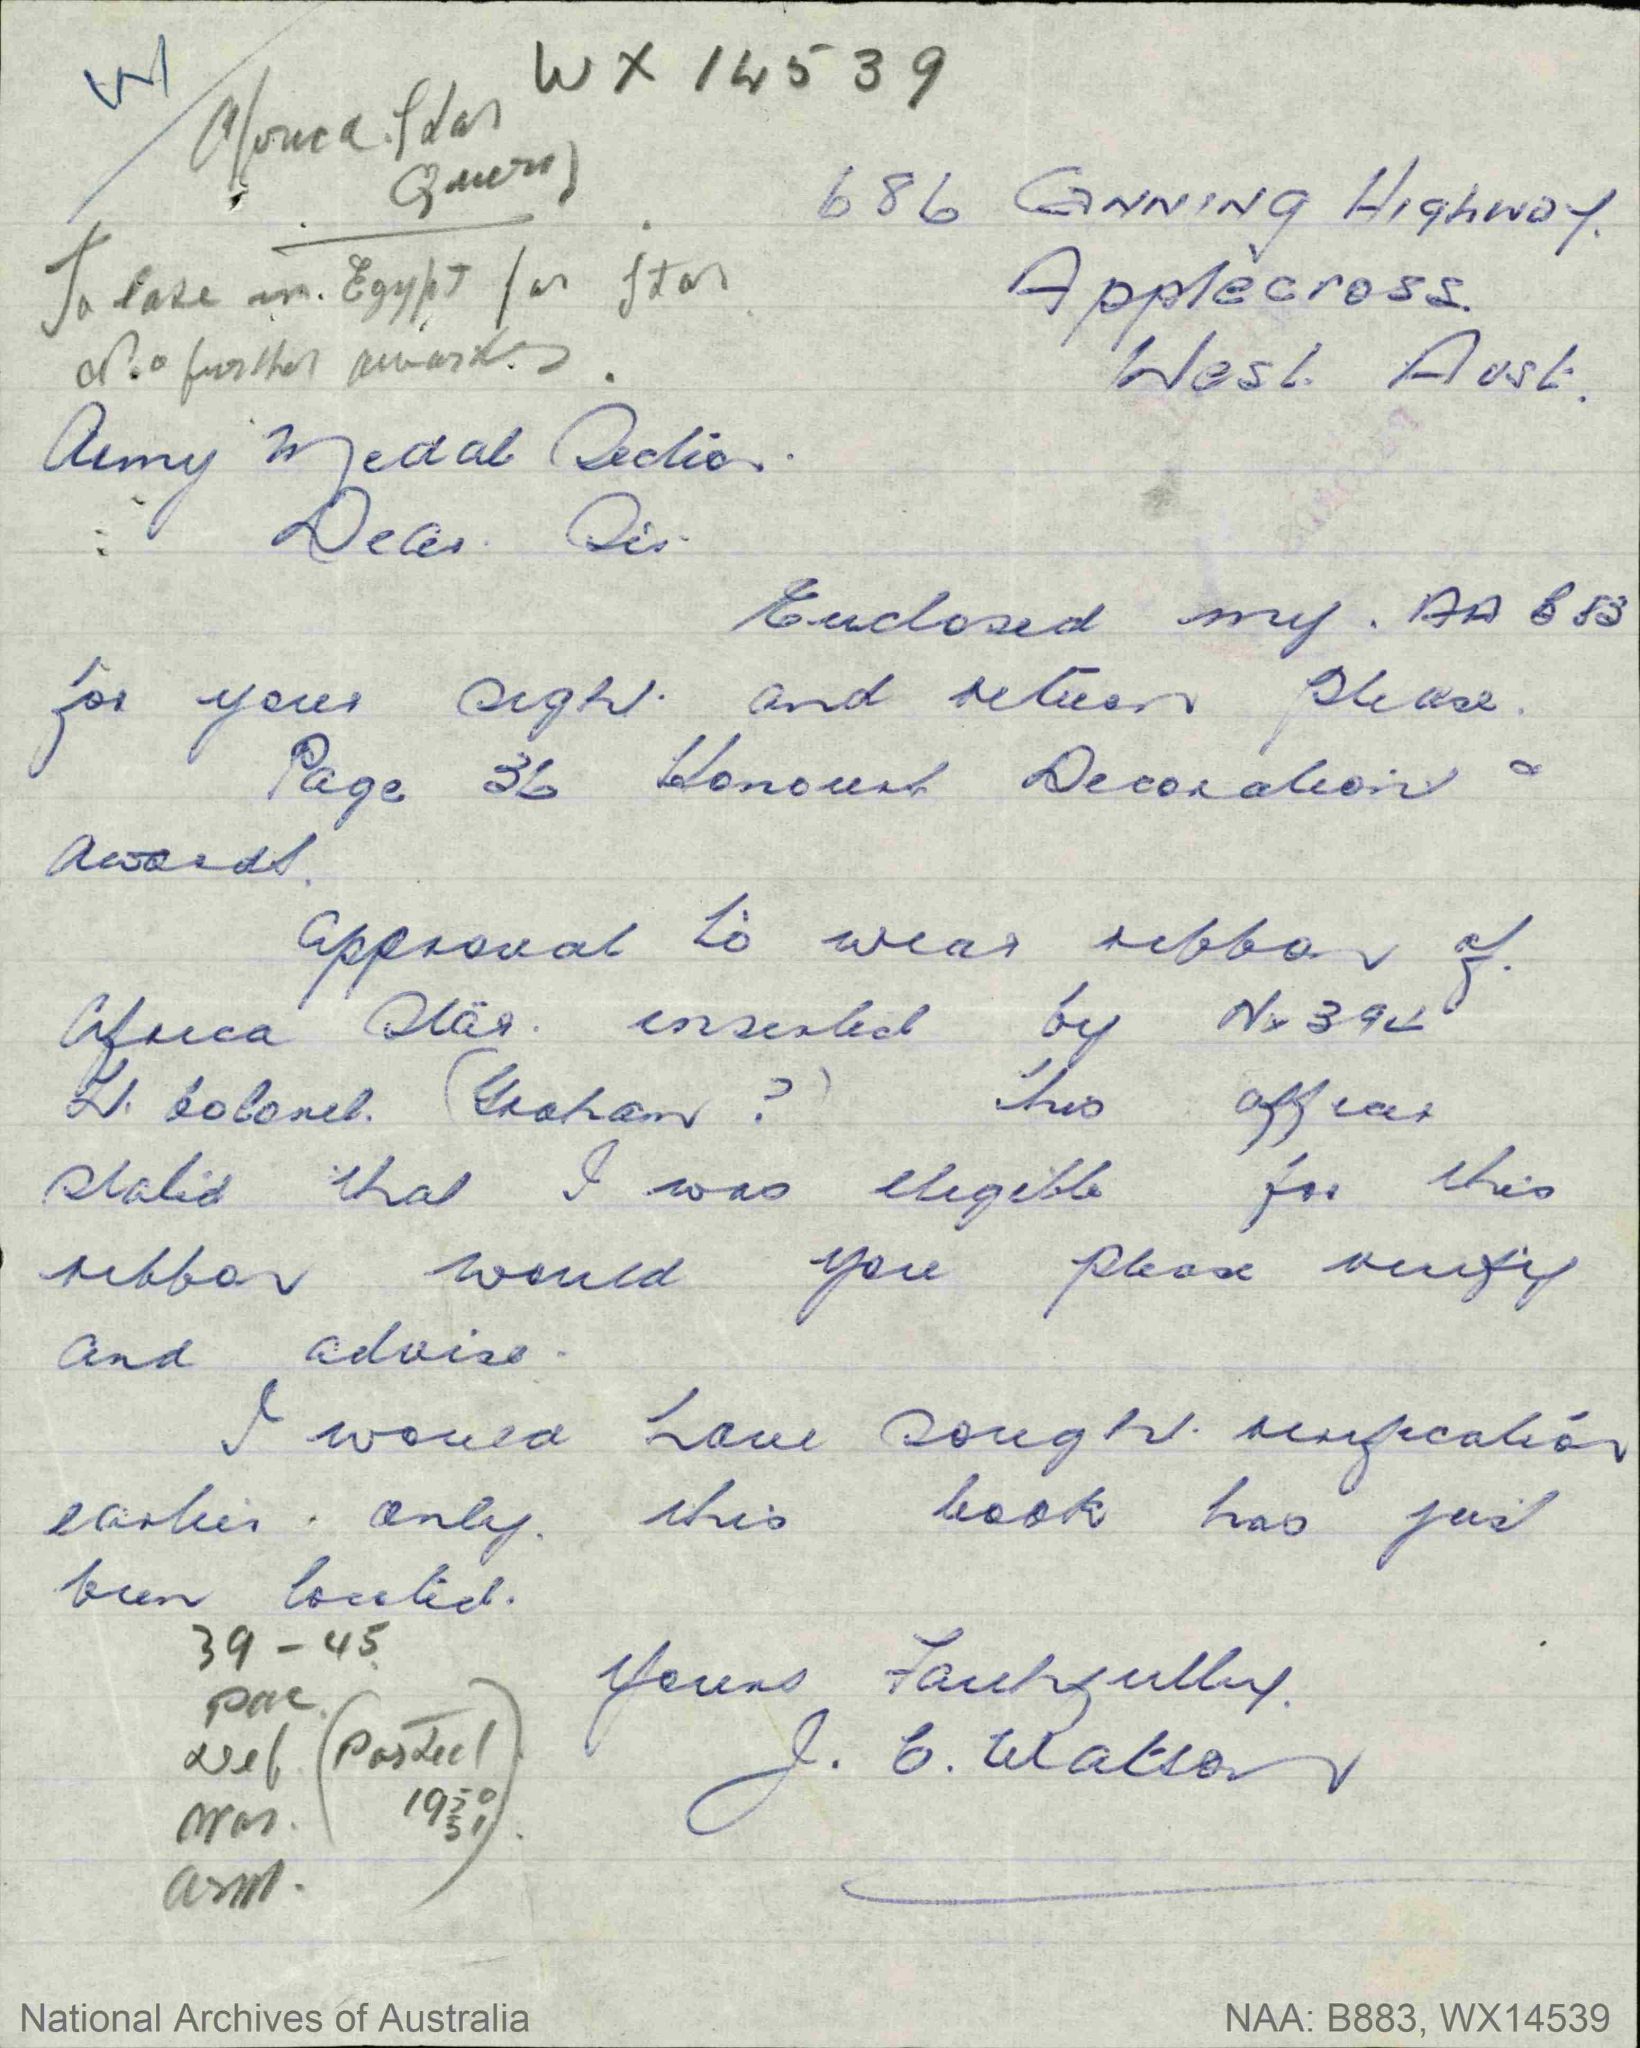 W
WX 14539
Africa Star
Query
To late in Egypt for Star
No further awards.
686 Canning Highway.
Applecross.
West. Aust.
Army Medal Section.
Dear Sir.
Enclosed my. AA B 83
for your sight. and return please.
Page 36 Honours Decoration &
awards.
Approval to wear ribbon of.
Africa Star. inserted by Nx 392
Lt. Colonel. (Graham ?) this officer
stated that I was eligible for this
ribbon would you please verify
and advise.
I would have sought. verification
earlier. only. this book has just
been located.
39-45
Pac.
Def.
War.
ASM.
(Posted
1950
51).
Yours Faithfully.
J. C. Watson
National Archives of Australia
NAA: B883, WX14539